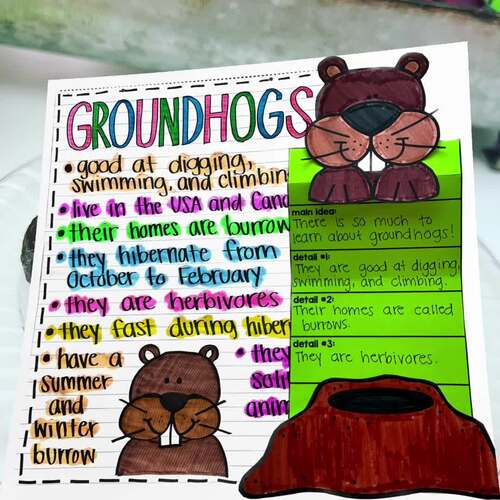 GROUNDHOGS
• good at digging,
swimming, and climbing
• live in the USA and Cana
• their homes are burrow
• they hibernate from
October to February
• they are herbivores
• they fast during hiber
• have a
summer
and
winter
burrow
• they
soli
anim
main idea:
There is so much to
learn about groundhogs!
detail #1:
They are good at digging,
swimming, and climbing.
detail #2:
Their homes are called
burrows.
detail #3:
They are herbivores.